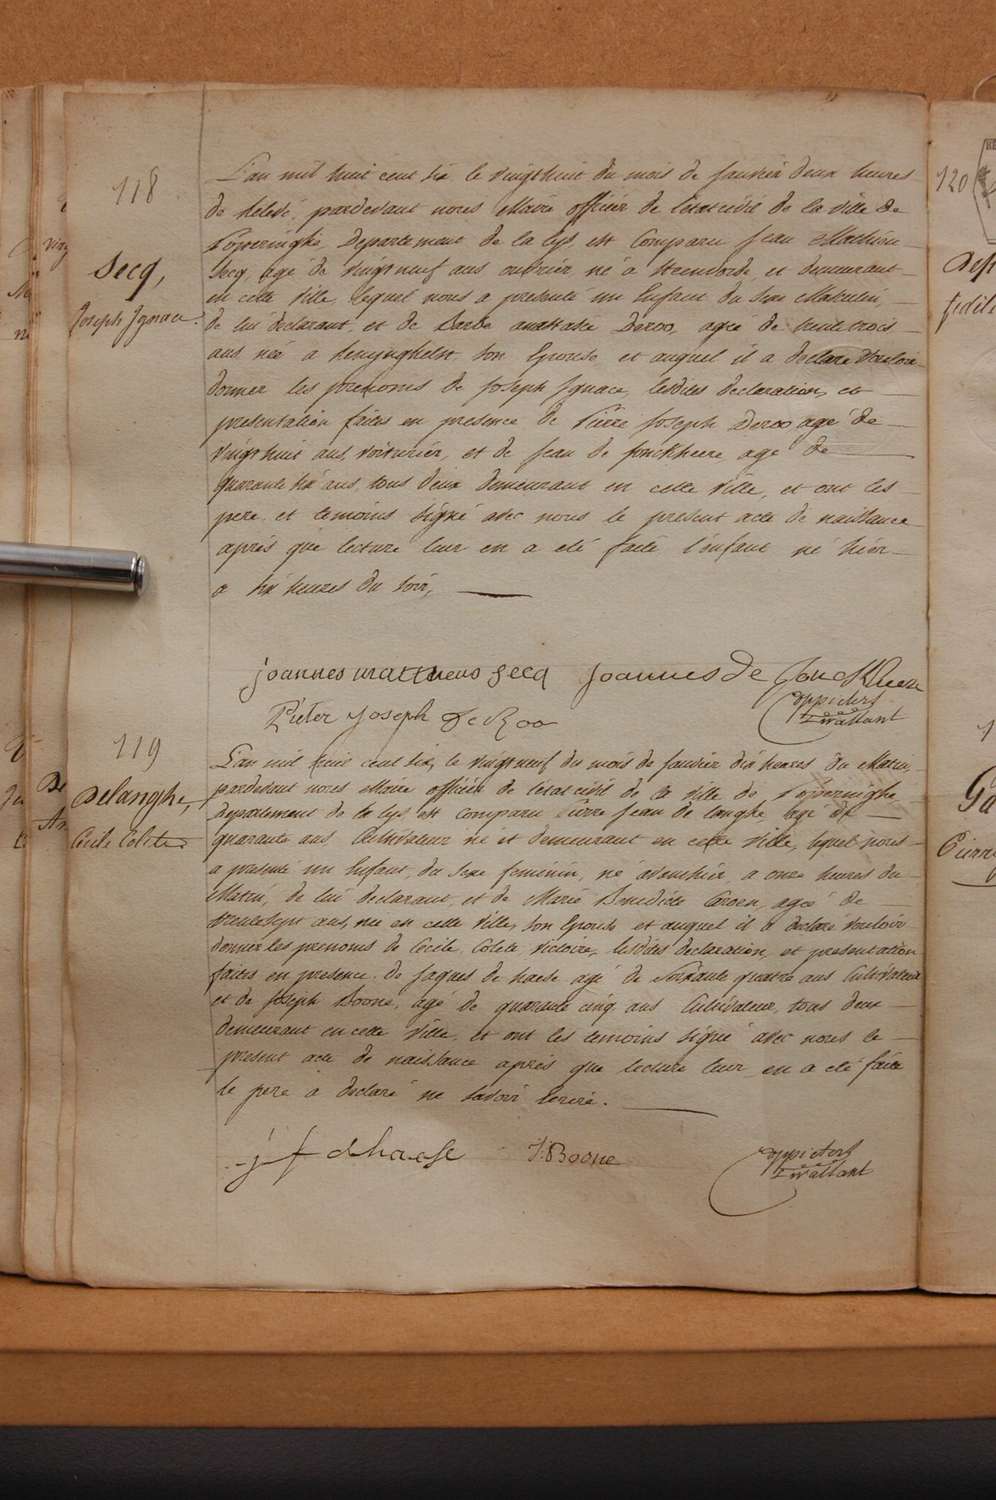 118
Secq,
Joseph Ignace.
L'an mil huit cent six le vingthuit du mois de janvier deux heures
de rélevé, pardevant nous Maire officier de l'état civil de la ville de
Poperinghe, Departement de la Lys, est Comparu Jean Mathieu
Secq, agé de vingtneuf ans ouvrier né à Steenvorde, et demeurant
en cette Ville, lequel nous a presenté un Enfant du Sexe Masculin,
de lui déclarant, et de Barbe anastasie Deroo, agée de trente trois
ans née à Reninghelst son Epouse et auquel il a declaré vouloir
donner les prenoms de Joseph Ignace, lesdites declaration, et
presentation faites en presence de Pierre Joseph Deroo agé de
vingthuit ans, voiturier, et de Jean de fonckheere agé de
quarante six ans, tous deux demeurant en cette Ville, et ont les
pere et temoins signé avec nous le present acte de naissance
après que lecture leur en a eté faite l'enfant né hier
a six heures du soir,
joannes mattheus Secq Joannes de Conckheere
Pieter Joseph De Roo
119
Delanghe,
Cecile Colete
L'an mil huit cent six, le vingtneuf du mois de janvier dix heures du Matin,
pardevant nous Maire officier de l'état civil de la Ville de Poperinghe
departement de la Lys, est comparu Pierre Jean de langhe, agé de
quarante ans, Cultivateur né et demeurant en cette Ville, lequel nous
a presenté un Enfant, du sexe feminin, né avanthier a onze heures du
Matin, de lui declarant, et de Marie Benedicte agée de
trentesept ans, née en cette Ville, son Epouse et auquel il a declaré vouloir
donner les prenoms de Cecile, Colete, victoire, lesdites declaration, et presentation
faites en presence de Jaques de haese agé de soixante quatre ans Cultivateur
et de Joseph Boone, agé de quarante cinq ans Cultivateur, tous deux
demeurant en cette Ville, et ont les temoins signé avec nous le
present acte de naissance après que lecture leur en a eté faite
le pere a declaré ne savoir Ecrire.
j f dhaese J. Boone
120